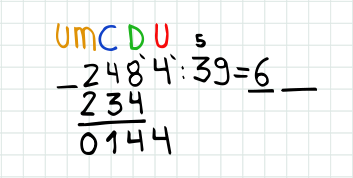 UM C D U
5
- 248'4' : 39 = 6 _
234
0144